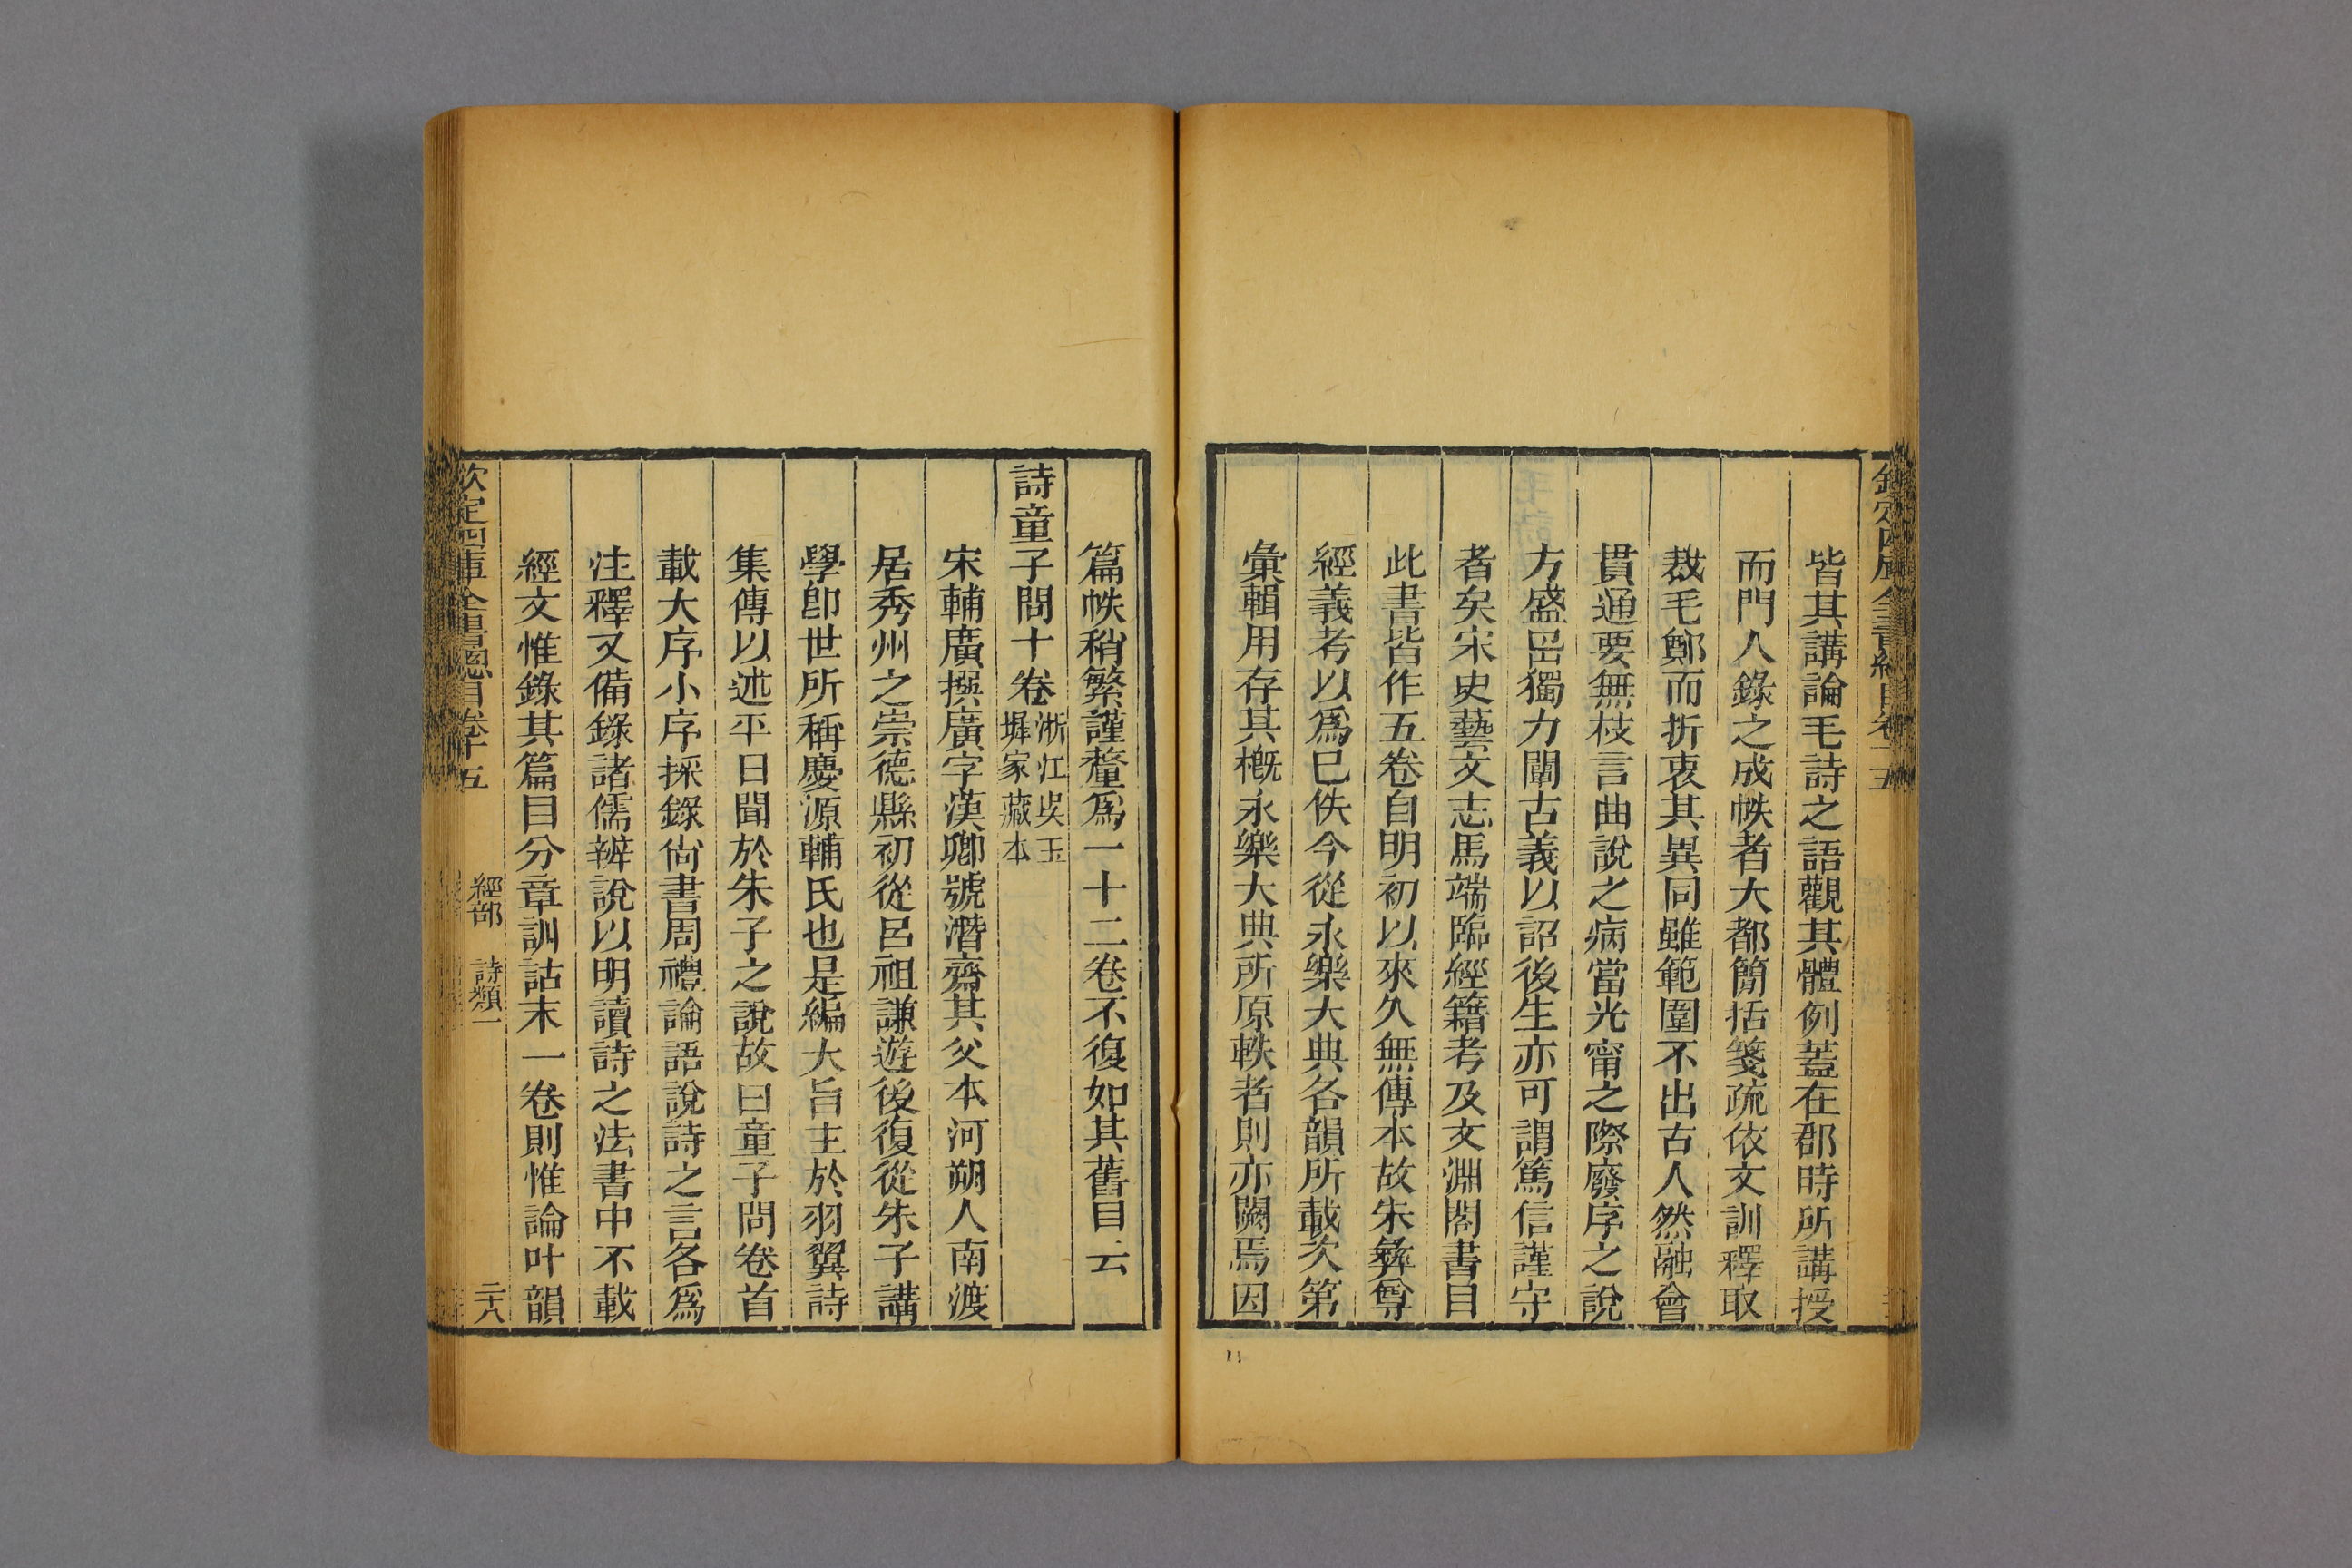 皆其講論毛詩之語觀其體例蓋在郡時所講授
而門人錄之成帙者大都簡括箋疏依文訓釋取
裁毛鄭而折衷其異同雖範圍不出古人然融會
貫通要無枝言曲說之病當光甯之際廢序之說
方盛岊獨力闡古義以詔後生亦可謂篤信謹守
者矣宋史藝文志馬端臨經籍考及文淵閣書目
此書皆作五卷自明初以來久無傳本故朱彝尊
經義考以爲已佚今從永樂大典各韻所載次第
彙輯用存其槪永樂大典所原軼者則亦闕焉因
篇帙稍繁謹釐爲一十二卷不復如其舊目云
詩童子問十卷浙江吳玉墀家藏本
宋輔廣撰廣字漢卿號潛齋其父本河朔人南渡
居秀州之崇德縣初從呂祖謙遊後復從朱子講
學卽世所稱慶源輔氏也是編大旨主於羽翼詩
集傳以述平日聞於朱子之說故曰童子問卷首
載大序小序採錄尙書周禮論語說詩之言各爲
注釋又備錄諸儒辨說以明讀詩之法書中不載
經文惟錄其篇目分章訓詁末一卷則惟論叶韻
欽定四庫全書總目卷十五 經部 詩類一 二十八